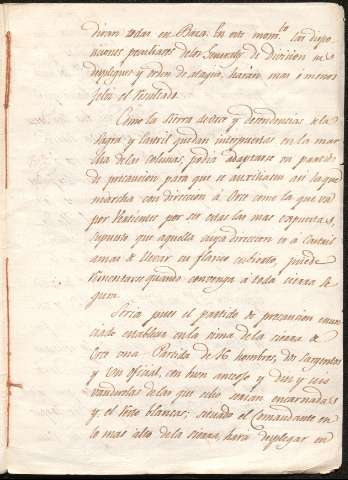 diran todas en Baza. En este mom.to las dispo
siciones peculiares de los Generales de Division en
despliegues y orden de ataque, harán mas ó menos
feliz el resultado.
Como la Sierra de Orce y dependencias de la
Sagra y quedan interpuestas en la mar
cha de las Colunas, podia adaptarse un partido
de precaucion para que se auxiliasen asi la que
marcha con direccion á Orce como la que va
por Vertientes por ser estas las mas expuestas,
supuesto que aquella cuya direccion es á Castril
amas de llevar su flanco cubierto, puede
cimentarse quando convenga á toda sierra se
gura.
Seria pues el partido de precaucion enun
ciado establecer en la cima de la sierra de
Orce una Partida de hombres, dos Sargentos
y un oficial, con buen anteojo y diez y seis
vanderolas de las que ocho serian encarnadas
y el resto blancas; situado el Comandante en
lo mas alto de la sierra, hará desplegar en